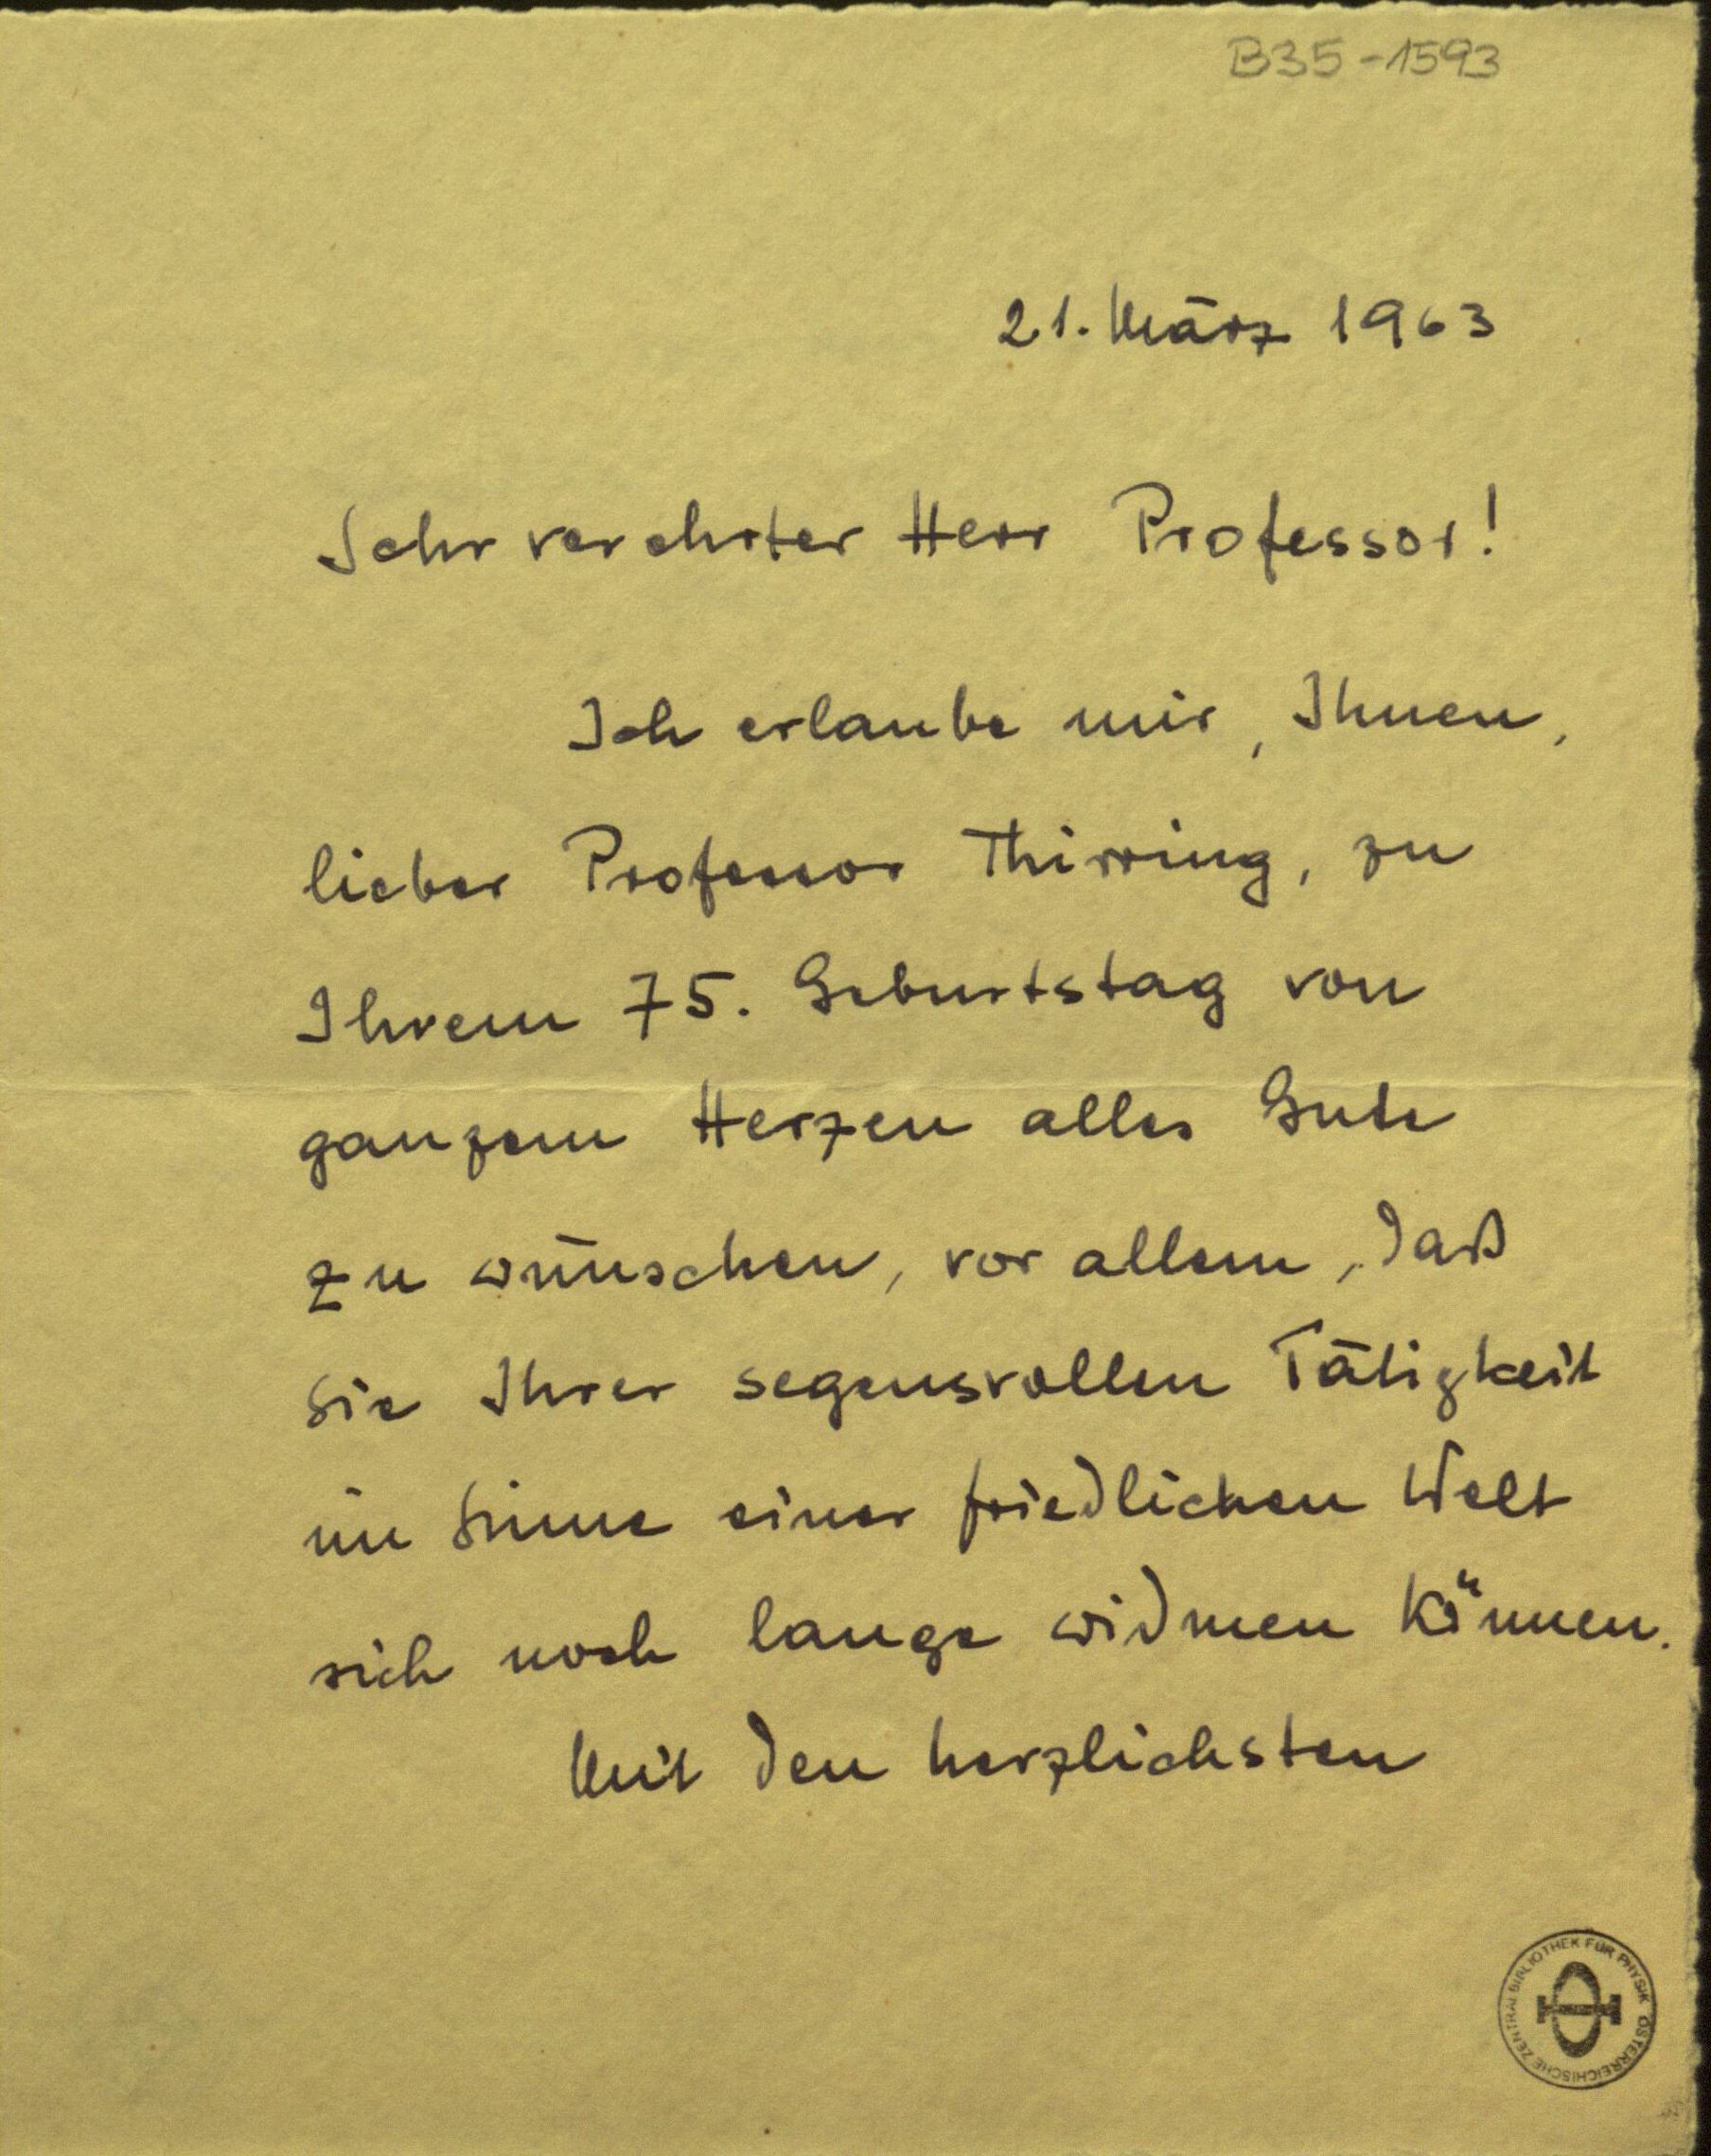 B35-1593
21. März 1963
Sehr verehrter Herr Professor!
Ich erlaube mir, Ihnen,
lieber Professor Thirring, zu
Ihrem 75. Geburtstag von
ganzem Herzen alles Gute
zu wünschen, vor allem, daß
Sie Ihrer segensvollen Tätigkeit
im Sinne einer friedlichen Welt
sich noch lange widmen können.
Mit den herzlichsten
ÖSTERREICHISCHE ZENTRALBIBLIOTHEK FÜR PHYSIK